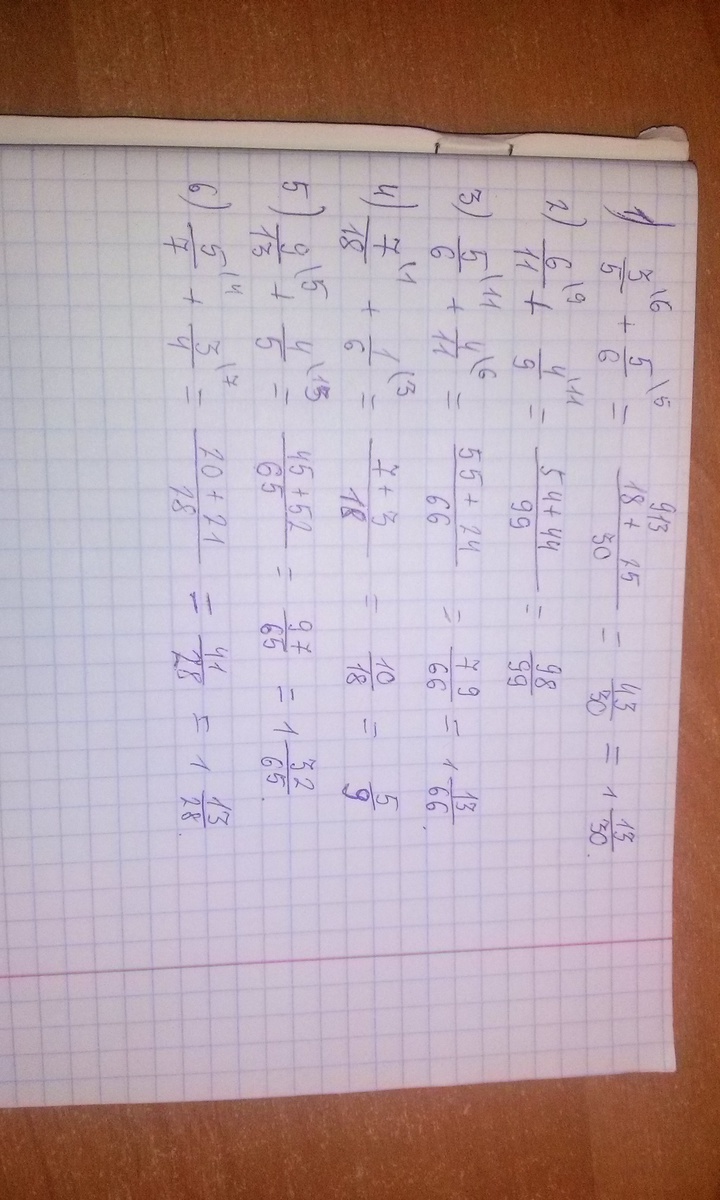 913
1) 3/5\6 + 5/6\5 = (18 + 25)/30 = 43/30 = 1 13/30.
2) 6/11\9 + 4/9\11 = (54+44)/99 = 98/99
3) 5/6\11 + 4/11\6 = (55+24)/66 = 79/66 = 1 13/66.
4) 7/18\1 + 1/6\3 = (7+3)/18 = 10/18 = 5/9
5) 9/13\5 + 4/5\13 = (45+52)/65 = 97/65 = 1 32/65.
6) 5/7\4 + 3/4\7 = (20+21)/28 = 41/28 = 1 13/28.